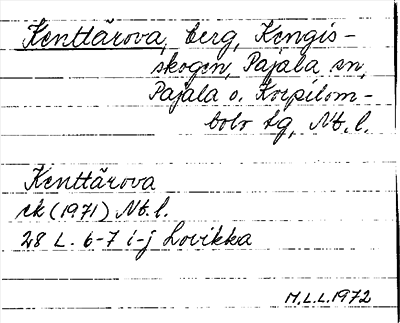 Kenttärova, berg, Kengis-
skogen, Pajala sn,
Pajala o. Korpilom-
bolo tg, Nb. l.
Kenttärova
ek (1971) Nb. l.
28 L. 6-7 i-j Lovikka
M.L.L. 1972